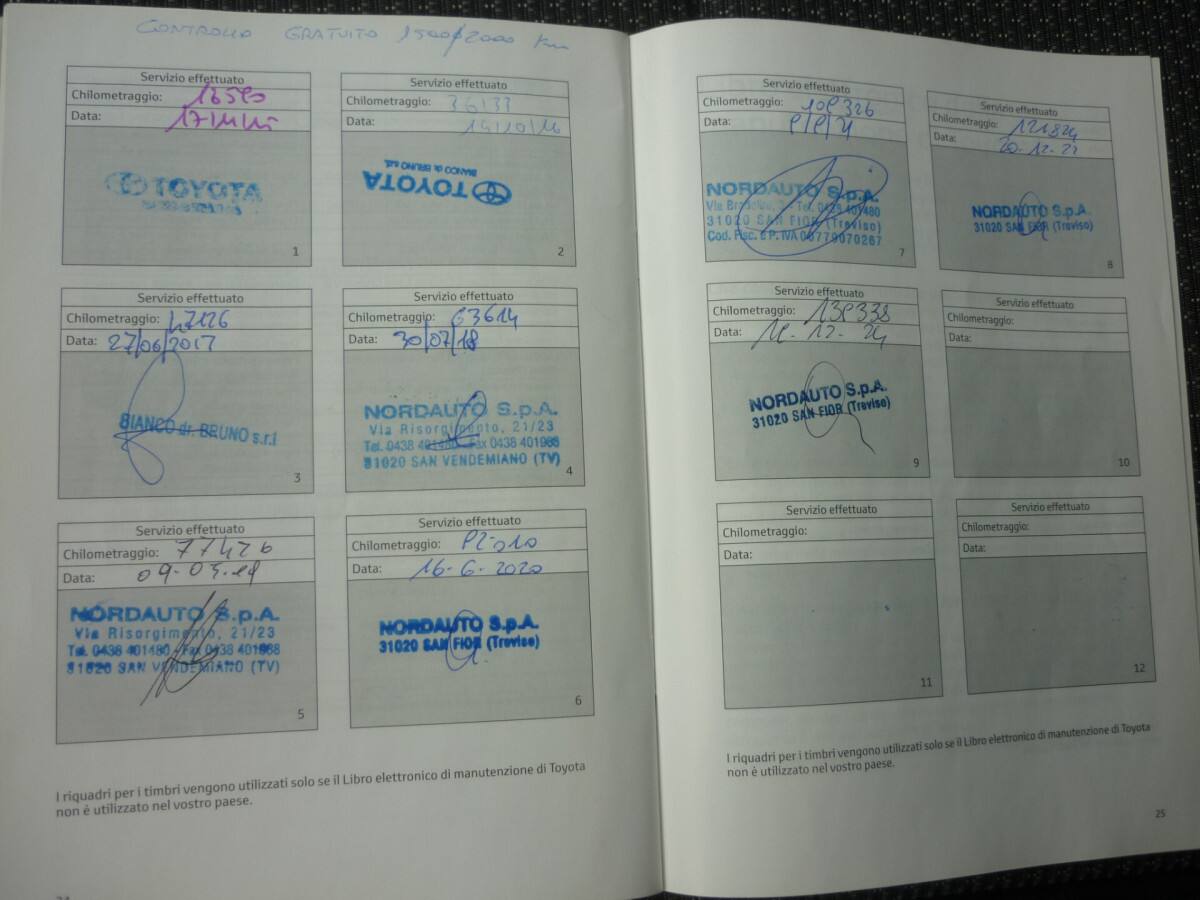 CONTROLLO GRATUITO 1500/2000 Km
Servizio effettuato
Chilometraggio: 16590
Data:
TOYOTA
1
Servizio effettuato
Chilometraggio: 36133
Data: 14/10/16
TOYOTA
BIANCO dr. BRUNO s.r.l.
2
Servizio effettuato
Chilometraggio: 47126
Data: 27/06/2017
BIANCO dr. BRUNO s.r.l
3
Servizio effettuato
Chilometraggio: 63614
Data: 30/07/18
NORDAUTO S.p.A.
Via Risorgimento, 21/23
Tel. 0438 401480 - Fax 0438 401988
31020 SAN VENDEMIANO (TV)
4
Servizio effettuato
Chilometraggio: 77426
Data: 09-05-19
NORDAUTO S.p.A.
Via Risorgimento, 21/23
Tel. 0438 401480 - Fax 0438 401988
31020 SAN VENDEMIANO (TV)
5
Servizio effettuato
Chilometraggio: 92.010
Data: 16-6-2020
NORDAUTO S.p.A.
31020 SAN FIOR (Treviso)
6
I riquadri per i timbri vengono utilizzati solo se il Libro elettronico di manutenzione di Toyota
non è utilizzato nel vostro paese.
Servizio effettuato
Chilometraggio: 109326
Data: 9/9/21
NORDAUTO S.p.A.
31020 SAN FIOR (Treviso)
Cod. Fisc. e P. IVA
7
Servizio effettuato
Chilometraggio: 121824
Data: 20-12-22
NORDAUTO S.p.A.
31020 SAN FIOR (Treviso)
8
Servizio effettuato
Chilometraggio: 139338
Data: 12-24
NORDAUTO S.p.A.
31020 SAN FIOR (Treviso)
9
Servizio effettuato
Chilometraggio:
Data:
10
Servizio effettuato
Chilometraggio:
Data:
11
Servizio effettuato
Chilometraggio:
Data:
12
I riquadri per i timbri vengono utilizzati solo se il Libro elettronico di manutenzione di Toyota
non è utilizzato nel vostro paese.
25